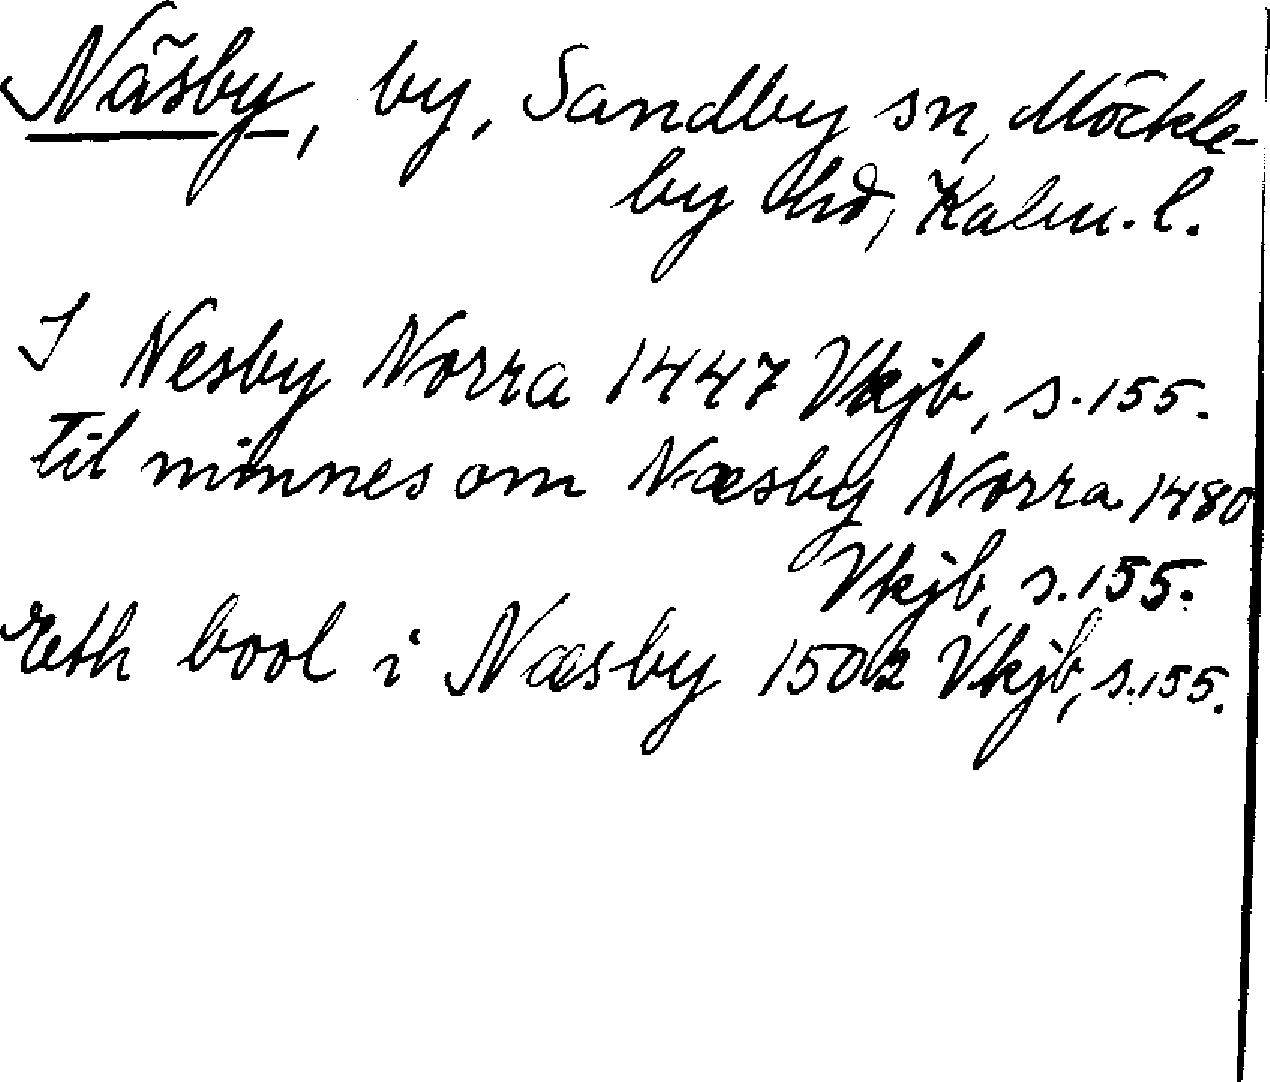 Näsby, by, Sandby sn, Möckle-
by hd, Kalm. l.
I Nesby Norra 1447 Vkjb, s. 155.
til minnes om Næsby Norra 1480
Vkjb, s. 155.
Eeth bool i Næsby 1502 Vkjb, s. 155.